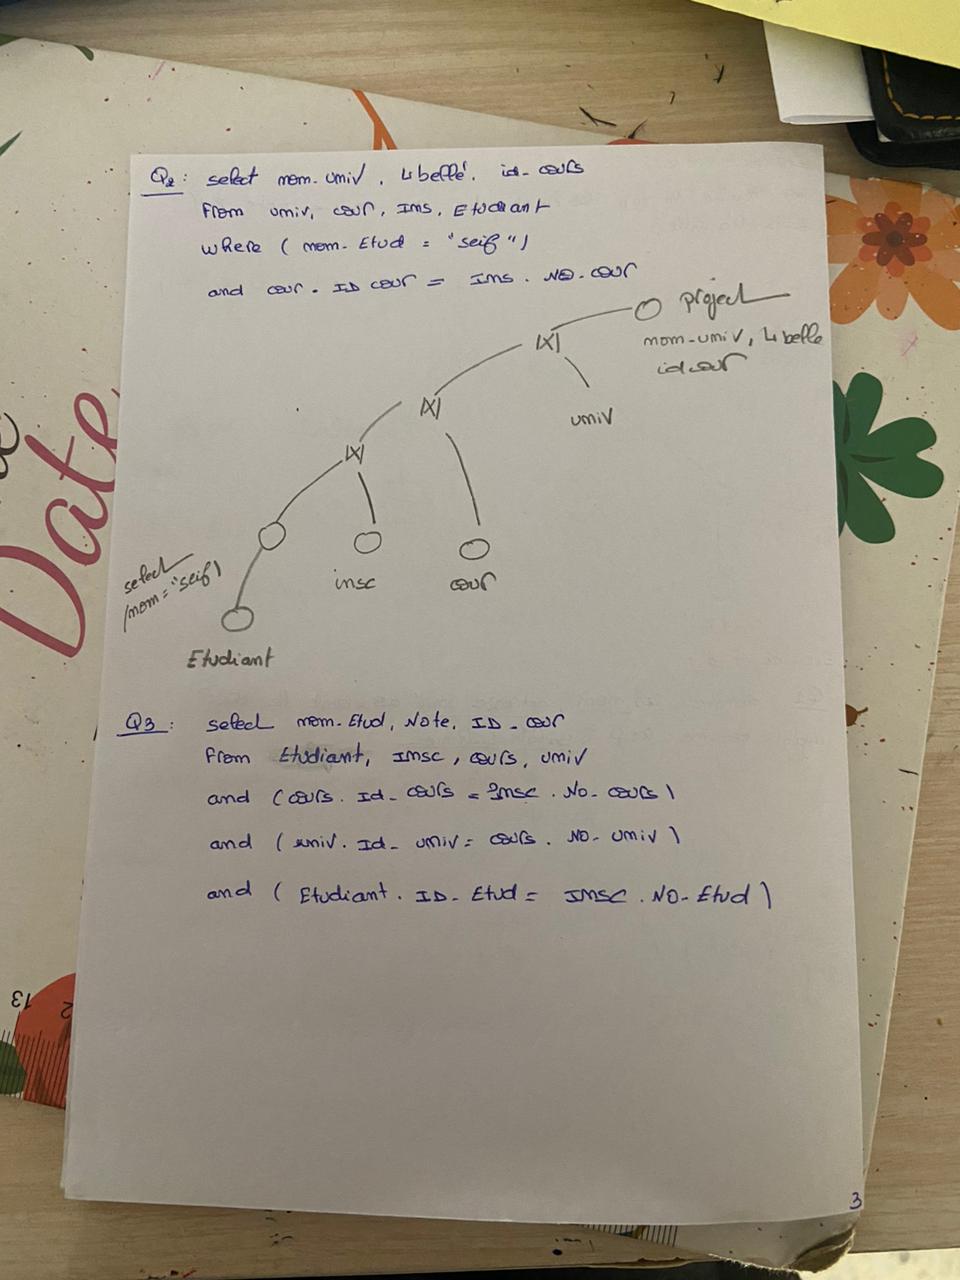 Q2: select nom-univ, Libellé, id-cours
From univ, cour, Ins, Etudiant
where (nom-Etud = "seif")
and cour.ID cour = Ins.NO-cour
project
nom-univ, Libelle
id cour
|X|
univ
|X|
|X|
select
(nom="seif)
insc
cour
Etudiant
Q3: select nom-Etud, Note, ID-cour
From Etudiant, Insc, cours, univ
and (cours.Id-cours = Insc.No-cours)
and (univ.Id-univ = cours.NO-univ)
and (Etudiant.ID-Etud = Insc.NO-Etud)
3
Date
13
2